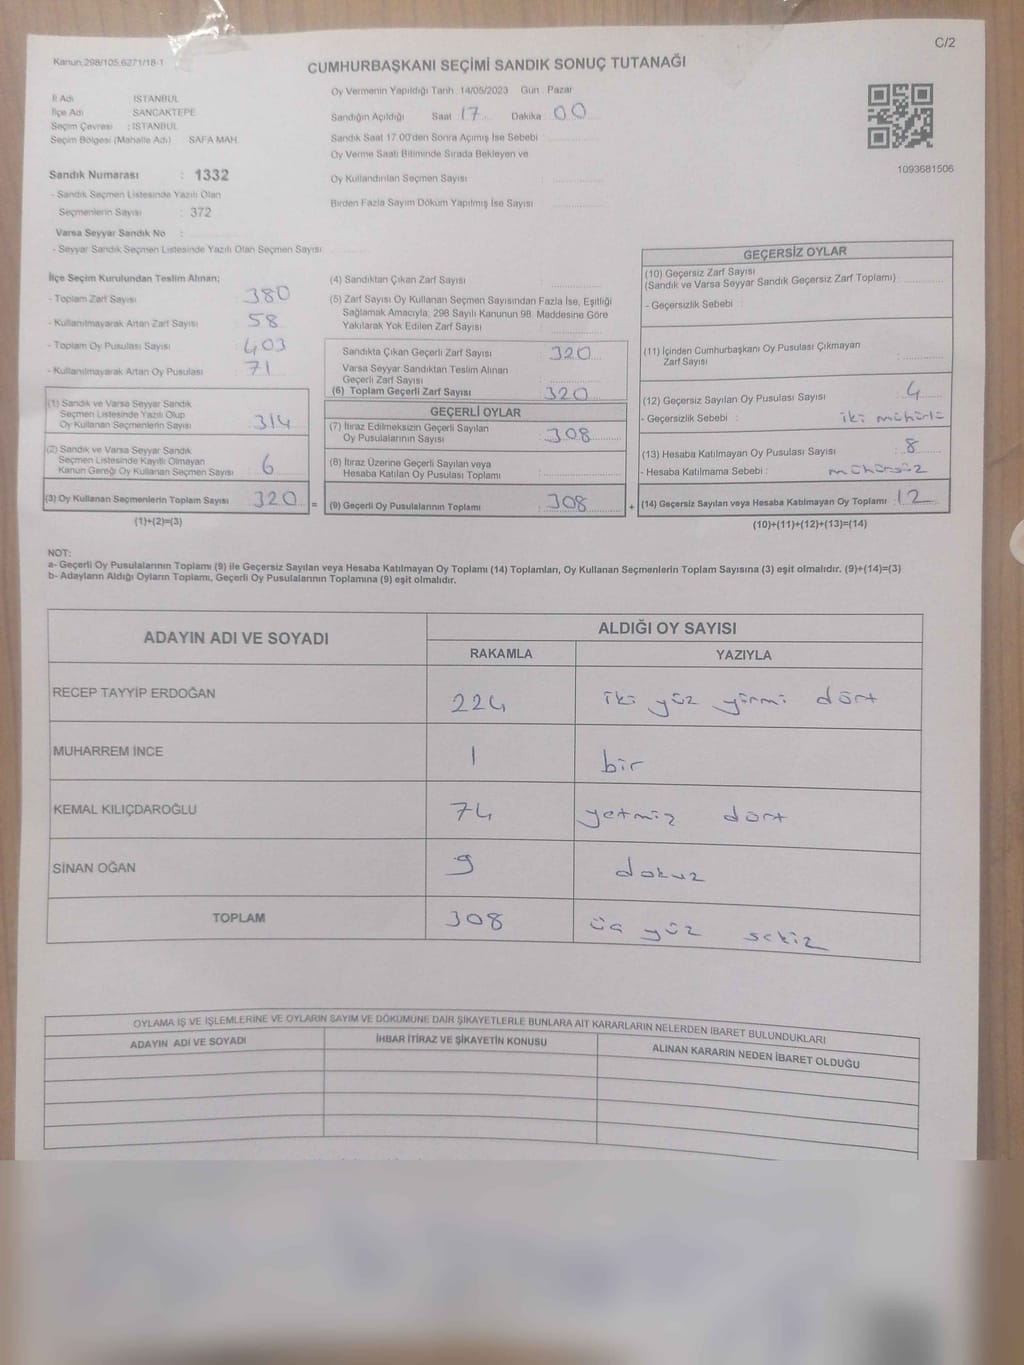 C/2
Kanun 298/105,6271/18-1
CUMHURBAŞKANI SEÇİMİ SANDIK SONUÇ TUTANAĞI
İl Adı İSTANBUL
İlçe Adı SANCAKTEPE
Seçim Çevresi : İSTANBUL
Seçim Bölgesi (Mahalle Adı) SAFA MAH.
Oy Vermenin Yapıldığı Tarih 14/05/2023 Gün : Pazar
Sandığın Açıldığı Saat 17 Dakika 00
Sandık Saat 17.00'den Sonra Açımış İse Sebebi
Oy Verme Saati Bitiminde Sırada Bekleyen ve
Oy Kullandırılan Seçmen Sayısı :
Birden Fazla Sayım Döküm Yapılmış İse Sayısı
1093681506
Sandık Numarası : 1332
- Sandık Seçmen Listesinde Yazılı Olan
Seçmenlerin Sayısı : 372
Varsa Seyyar Sandık No :
- Seyyar Sandık Seçmen Listesinde Yazılı Olan Seçmen Sayısı
İlçe Seçim Kurulundan Teslim Alınan;
- Toplam Zarf Sayısı 380
- Kullanılmayarak Artan Zarf Sayısı 58
- Toplam Oy Pusulası Sayısı : 403
- Kullanılmayarak Artan Oy Pusulası 71
(1) Sandık ve Varsa Seyyar Sandık
Seçmen Listesinde Yazılı Olup
Oy Kullanan Seçmenlerin Sayısı 314
(2) Sandık ve Varsa Seyyar Sandık
Seçmen Listesinde Kayıtlı Olmayan
Kanun Gereği Oy Kullanan Seçmen Sayısı 6
(3) Oy Kullanan Seçmenlerin Toplam Sayısı 320 =
(1)+(2)=(3)
(4) Sandıktan Çıkan Zarf Sayısı :
(5) Zarf Sayısı Oy Kullanan Seçmen Sayısından Fazla İse, Eşitliği
Sağlamak Amacıyla; 298 Sayılı Kanunun 98. Maddesine Göre
Yakılarak Yok Edilen Zarf Sayısı :
Sandıkta Çıkan Geçerli Zarf Sayısı : 320
Varsa Seyyar Sandıktan Teslim Alınan
Geçerli Zarf Sayısı :
(6) Toplam Geçerli Zarf Sayısı 320
GEÇERLİ OYLAR
(7) İtiraz Edilmeksizin Geçerli Sayılan
Oy Pusulalarının Sayısı : 308
(8) İtiraz Üzerine Geçerli Sayılan veya
Hesaba Katılan Oy Pusulası Toplamı :
(9) Geçerli Oy Pusulalarının Toplamı : 308 +
GEÇERSİZ OYLAR
(10) Geçersiz Zarf Sayısı
(Sandık ve Varsa Seyyar Sandık Geçersiz Zarf Toplamı)
- Geçersizlik Sebebi :
(11) İçinden Cumhurbaşkanı Oy Pusulası Çıkmayan
Zarf Sayısı :
(12) Geçersiz Sayılan Oy Pusulası Sayısı 4
- Geçersizlik Sebebi : iki mühürlü
(13) Hesaba Katılmayan Oy Pusulası Sayısı : 8
- Hesaba Katılmama Sebebi : mühürsüz
(14) Geçersiz Sayılan veya Hesaba Katılmayan Oy Toplamı : 12
(10)+(11)+(12)+(13)=(14)
NOT:
a- Geçerli Oy Pusulalarının Toplamı (9) ile Geçersiz Sayılan veya Hesaba Katılmayan Oy Toplamı (14) Toplamları, Oy Kullanan Seçmenlerin Toplam Sayısına (3) eşit olmalıdır. (9)+(14)=(3)
b- Adayların Aldığı Oyların Toplamı, Geçerli Oy Pusulalarının Toplamına (9) eşit olmalıdır.
ADAYIN ADI VE SOYADI ALDIĞI OY SAYISI
RAKAMLA YAZIYLA
RECEP TAYYİP ERDOĞAN 224 iki yüz yirmi dört
MUHARREM İNCE 1 bir
KEMAL KILIÇDAROĞLU 74 yetmiş dört
SİNAN OĞAN 9 dokuz
TOPLAM 308 üç yüz sekiz
OYLAMA İŞ VE İŞLEMLERİNE VE OYLARIN SAYIM VE DÖKÜMÜNE DAİR ŞİKAYETLERLE BUNLARA AİT KARARLARIN NELERDEN İBARET BULUNDUKLARI
ADAYIN ADI VE SOYADI İHBAR İTİRAZ VE ŞİKAYETİN KONUSU ALINAN KARARIN NEDEN İBARET OLDUĞU